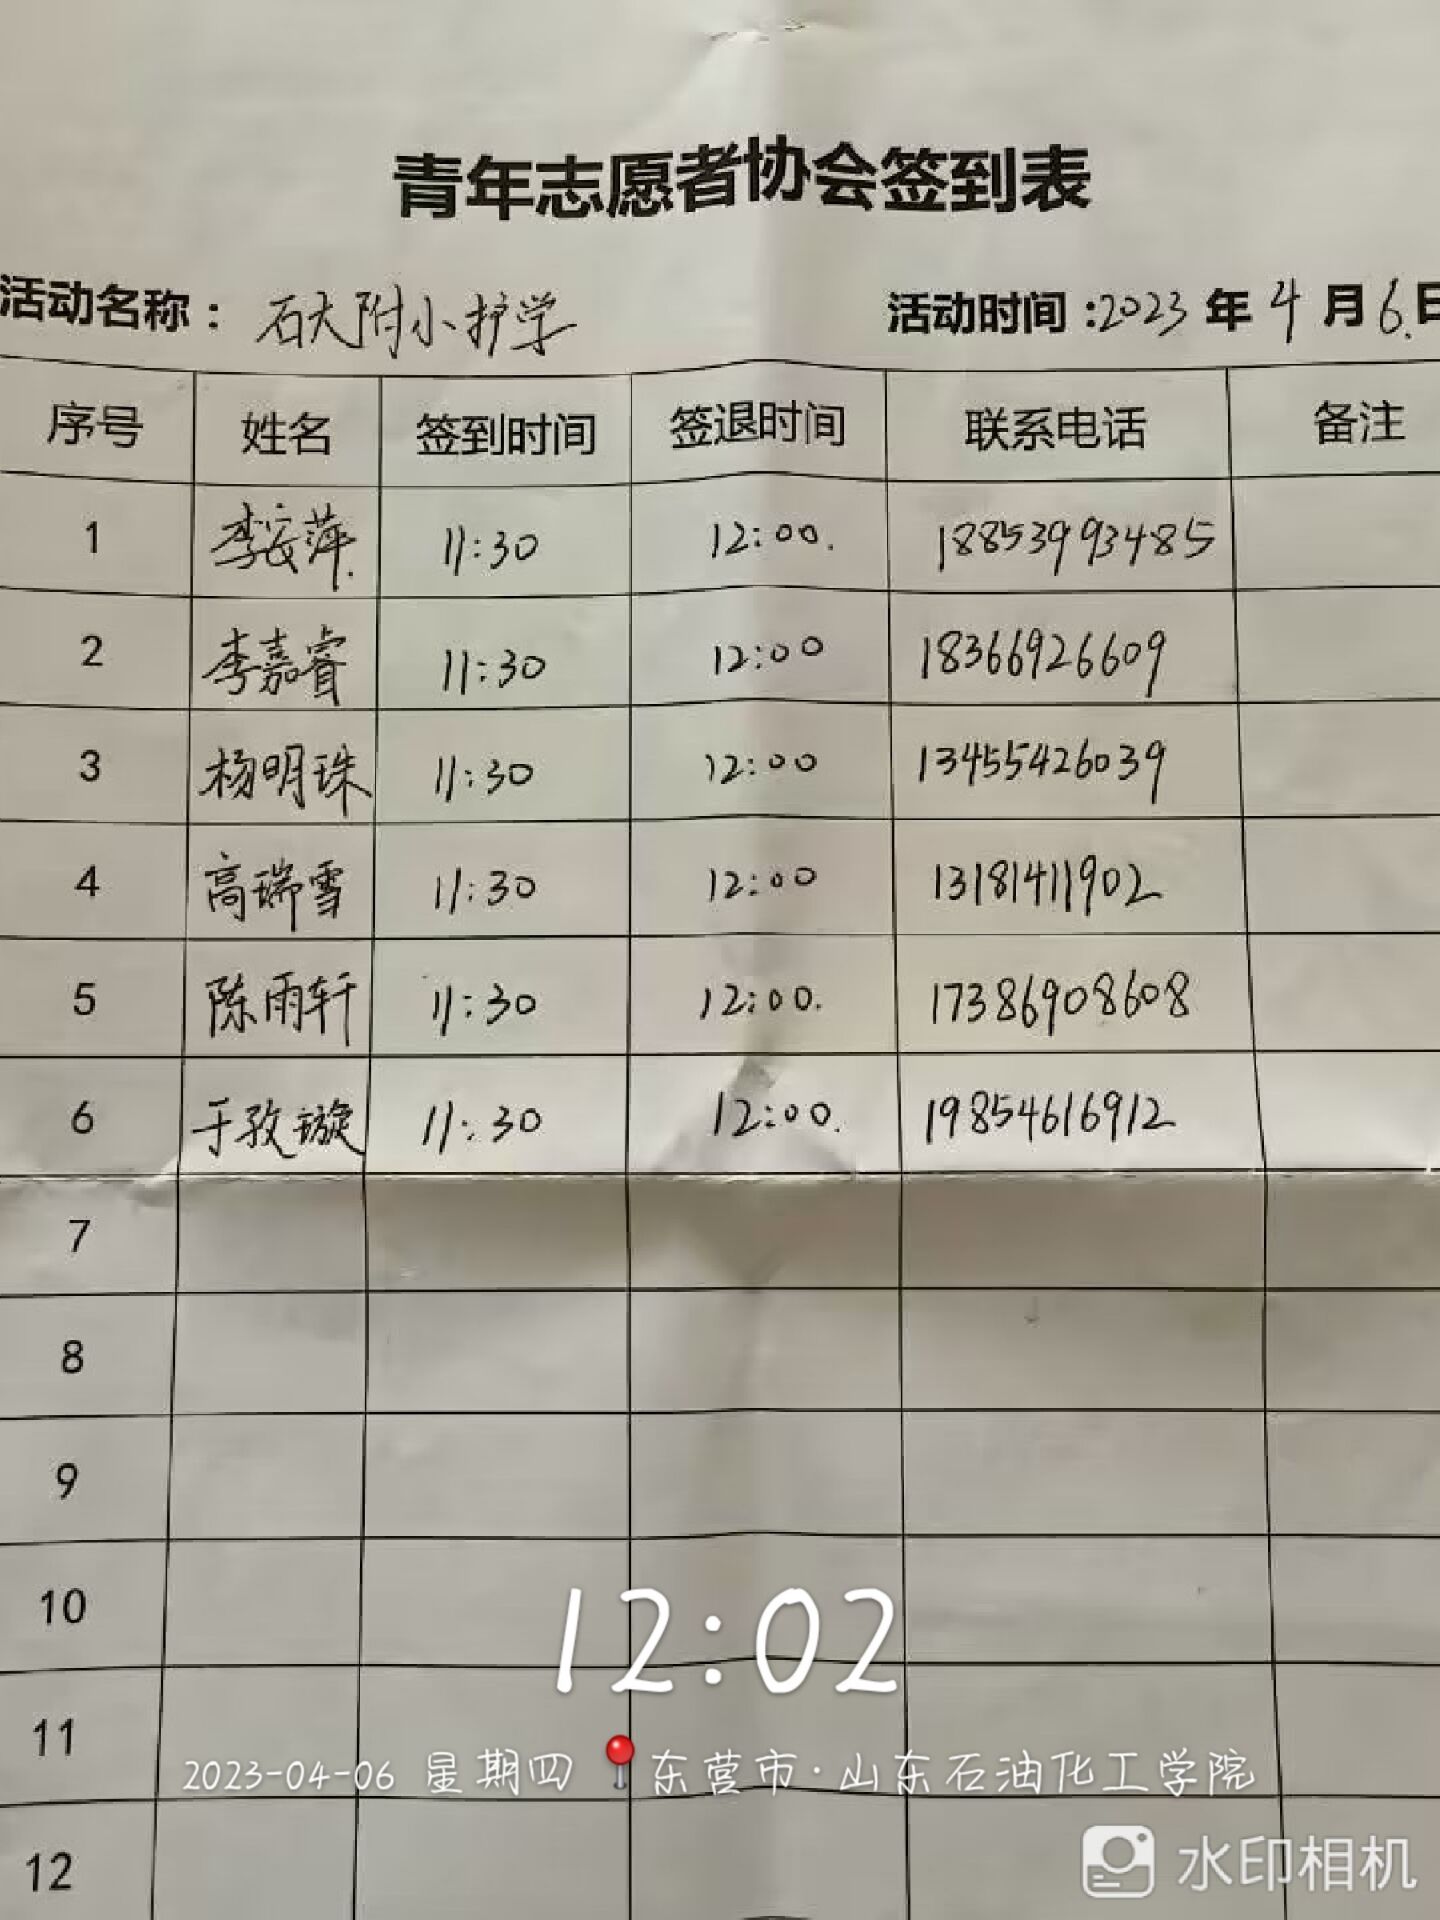 青年志愿者协会签到表
活动名称：石大附小护学 活动时间：2023年4月6日
序号 姓名 签到时间 签退时间 联系电话 备注
1 李安萍 11:30 12:00. 18853993485
2 李嘉睿 11:30 12:00 18366926609
3 杨明珠 11:30 12:00 13455426039
4 高瑞雪 11:30 12:00 13181411902
5 陈雨轩 11:30 12:00. 17386908608
6 于孜璇 11:30 12:00. 19854616912
7
8
9
10
12:02
11
2023-04-06 星期四 东营市·山东石油化工学院
12
水印相机